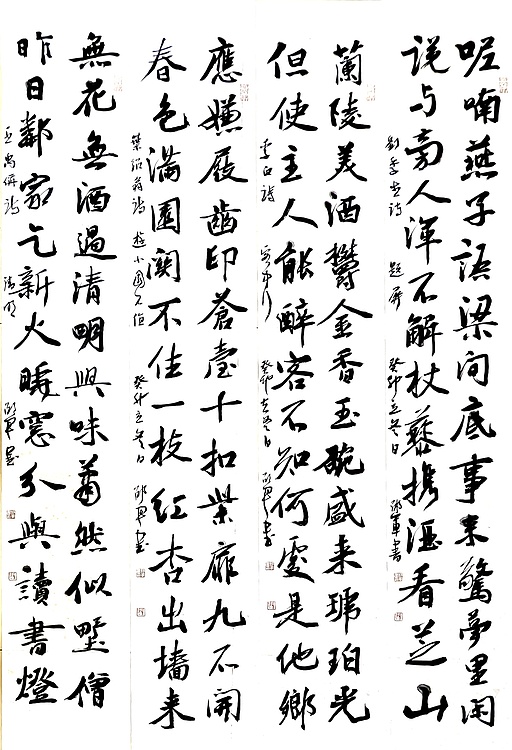 呢喃燕子語梁间底事来驚夢里闲
说与旁人浑不解杖藜携酒看芝山
劉季孫诗 题屏 癸卯立冬日 军书
蘭陵美酒鬱金香玉碗盛来琥珀光
但使主人能醉客不知何處是他鄉
李白詩 客中行 癸卯立冬日 军书
應嫌屐齒印蒼苔十扣柴扉九不開
春色滿園関不住一枝红杏出墙来
葉绍翁诗 游小園不值 癸卯立冬日 军书
無花無酒過清明興味蕭然似墅僧
昨日鄰家乞新火曉窓分與讀書燈
王禹偁诗 清明 军